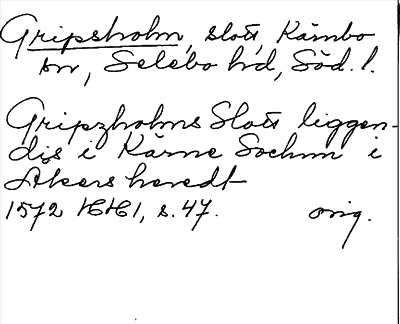 Gripsholm, slott, Kärnbo
sn, Selebo hd, Söd. l.
Gripzholms Slott liggen-
dis i Kärne Sochnn i
Akers heredt
1572 HH1, s. 47. orig.